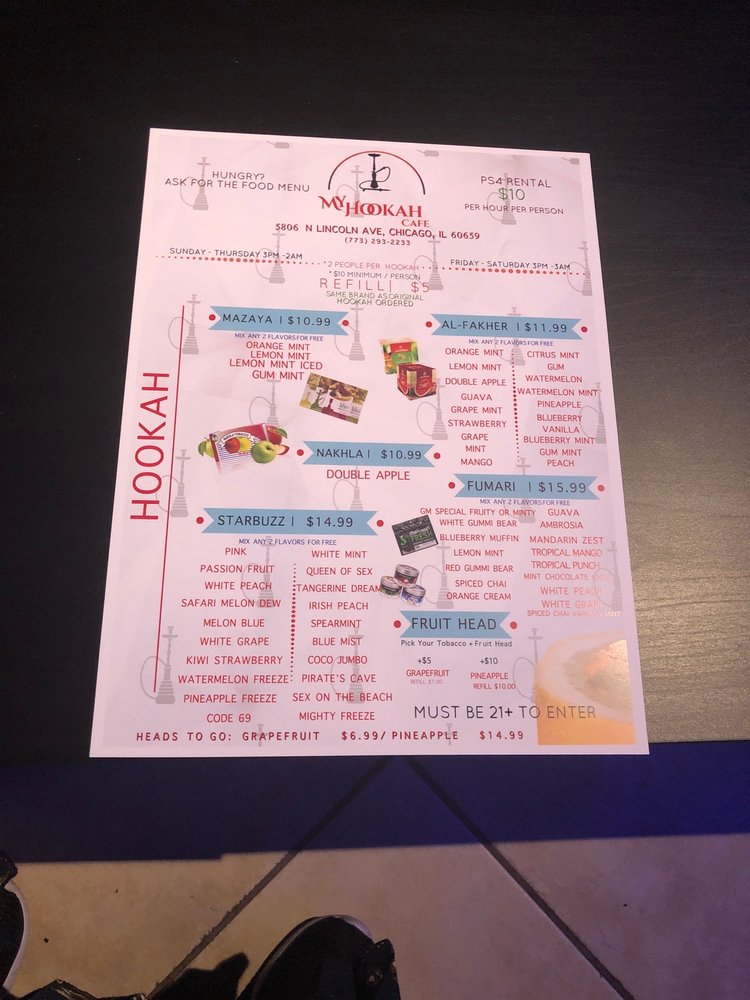 HUNGRY?
ASK FOR THE FOOD MENU
MYHOOKAH
CAFE
5806 N LINCOLN AVE, CHICAGO, IL 60659
(773) 293-2233
PS4 RENTAL
$10
PER HOUR PER PERSON
SUNDAY - THURSDAY 3PM -2AM
*2 PEOPLE PER HOOKAH
*$10 MINIMUM / PERSON
FRIDAY - SATURDAY 3PM -3AM
REFILL| $5
SAME BRAND AS ORIGINAL
HOOKAH ORDERED
HOOKAH
MAZAYA | $10.99
MIX ANY 2 FLAVORS FOR FREE
ORANGE MINT
LEMON MINT
LEMON MINT ICED
GUM MINT
AL-FAKHER | $11.99
MIX ANY 2 FLAVORS FOR FREE
ORANGE MINT
LEMON MINT
DOUBLE APPLE
GUAVA
GRAPE MINT
STRAWBERRY
GRAPE
MINT
MANGO
CITRUS MINT
GUM
WATERMELON
WATERMELON MINT
PINEAPPLE
BLUEBERRY
VANILLA
BLUEBERRY MINT
GUM MINT
PEACH
NAKHLA | $10.99
DOUBLE APPLE
STARBUZZ | $14.99
MIX ANY 2 FLAVORS FOR FREE
PINK
PASSION FRUIT
WHITE PEACH
SAFARI MELON DEW
MELON BLUE
WHITE GRAPE
KIWI STRAWBERRY
WATERMELON FREEZE
PINEAPPLE FREEZE
CODE 69
WHITE MINT
QUEEN OF SEX
TANGERINE DREAM
IRISH PEACH
SPEARMINT
BLUE MIST
COCO JUMBO
PIRATE'S CAVE
SEX ON THE BEACH
MIGHTY FREEZE
FUMARI | $15.99
MIX ANY 2 FLAVORS FOR FREE
GM SPECIAL FRUITY OR MINTY
WHITE GUMMI BEAR
BLUEBERRY MUFFIN
LEMON MINT
RED GUMMI BEAR
SPICED CHAI
ORANGE CREAM
GUAVA
AMBROSIA
MANDARIN ZEST
TROPICAL MANGO
TROPICAL PUNCH
MINT CHOCOLATE CHILL
WHITE PEACH
WHITE GRAPE
SPICED CHAI VANILLA MINT
FRUIT HEAD
Pick Your Tobacco + Fruit Head
+$5
GRAPEFRUIT
REFILL $7.00
+$10
PINEAPPLE
REFILL $10.00
MUST BE 21+ TO ENTER
HEADS TO GO: GRAPEFRUIT $6.99/ PINEAPPLE $14.99